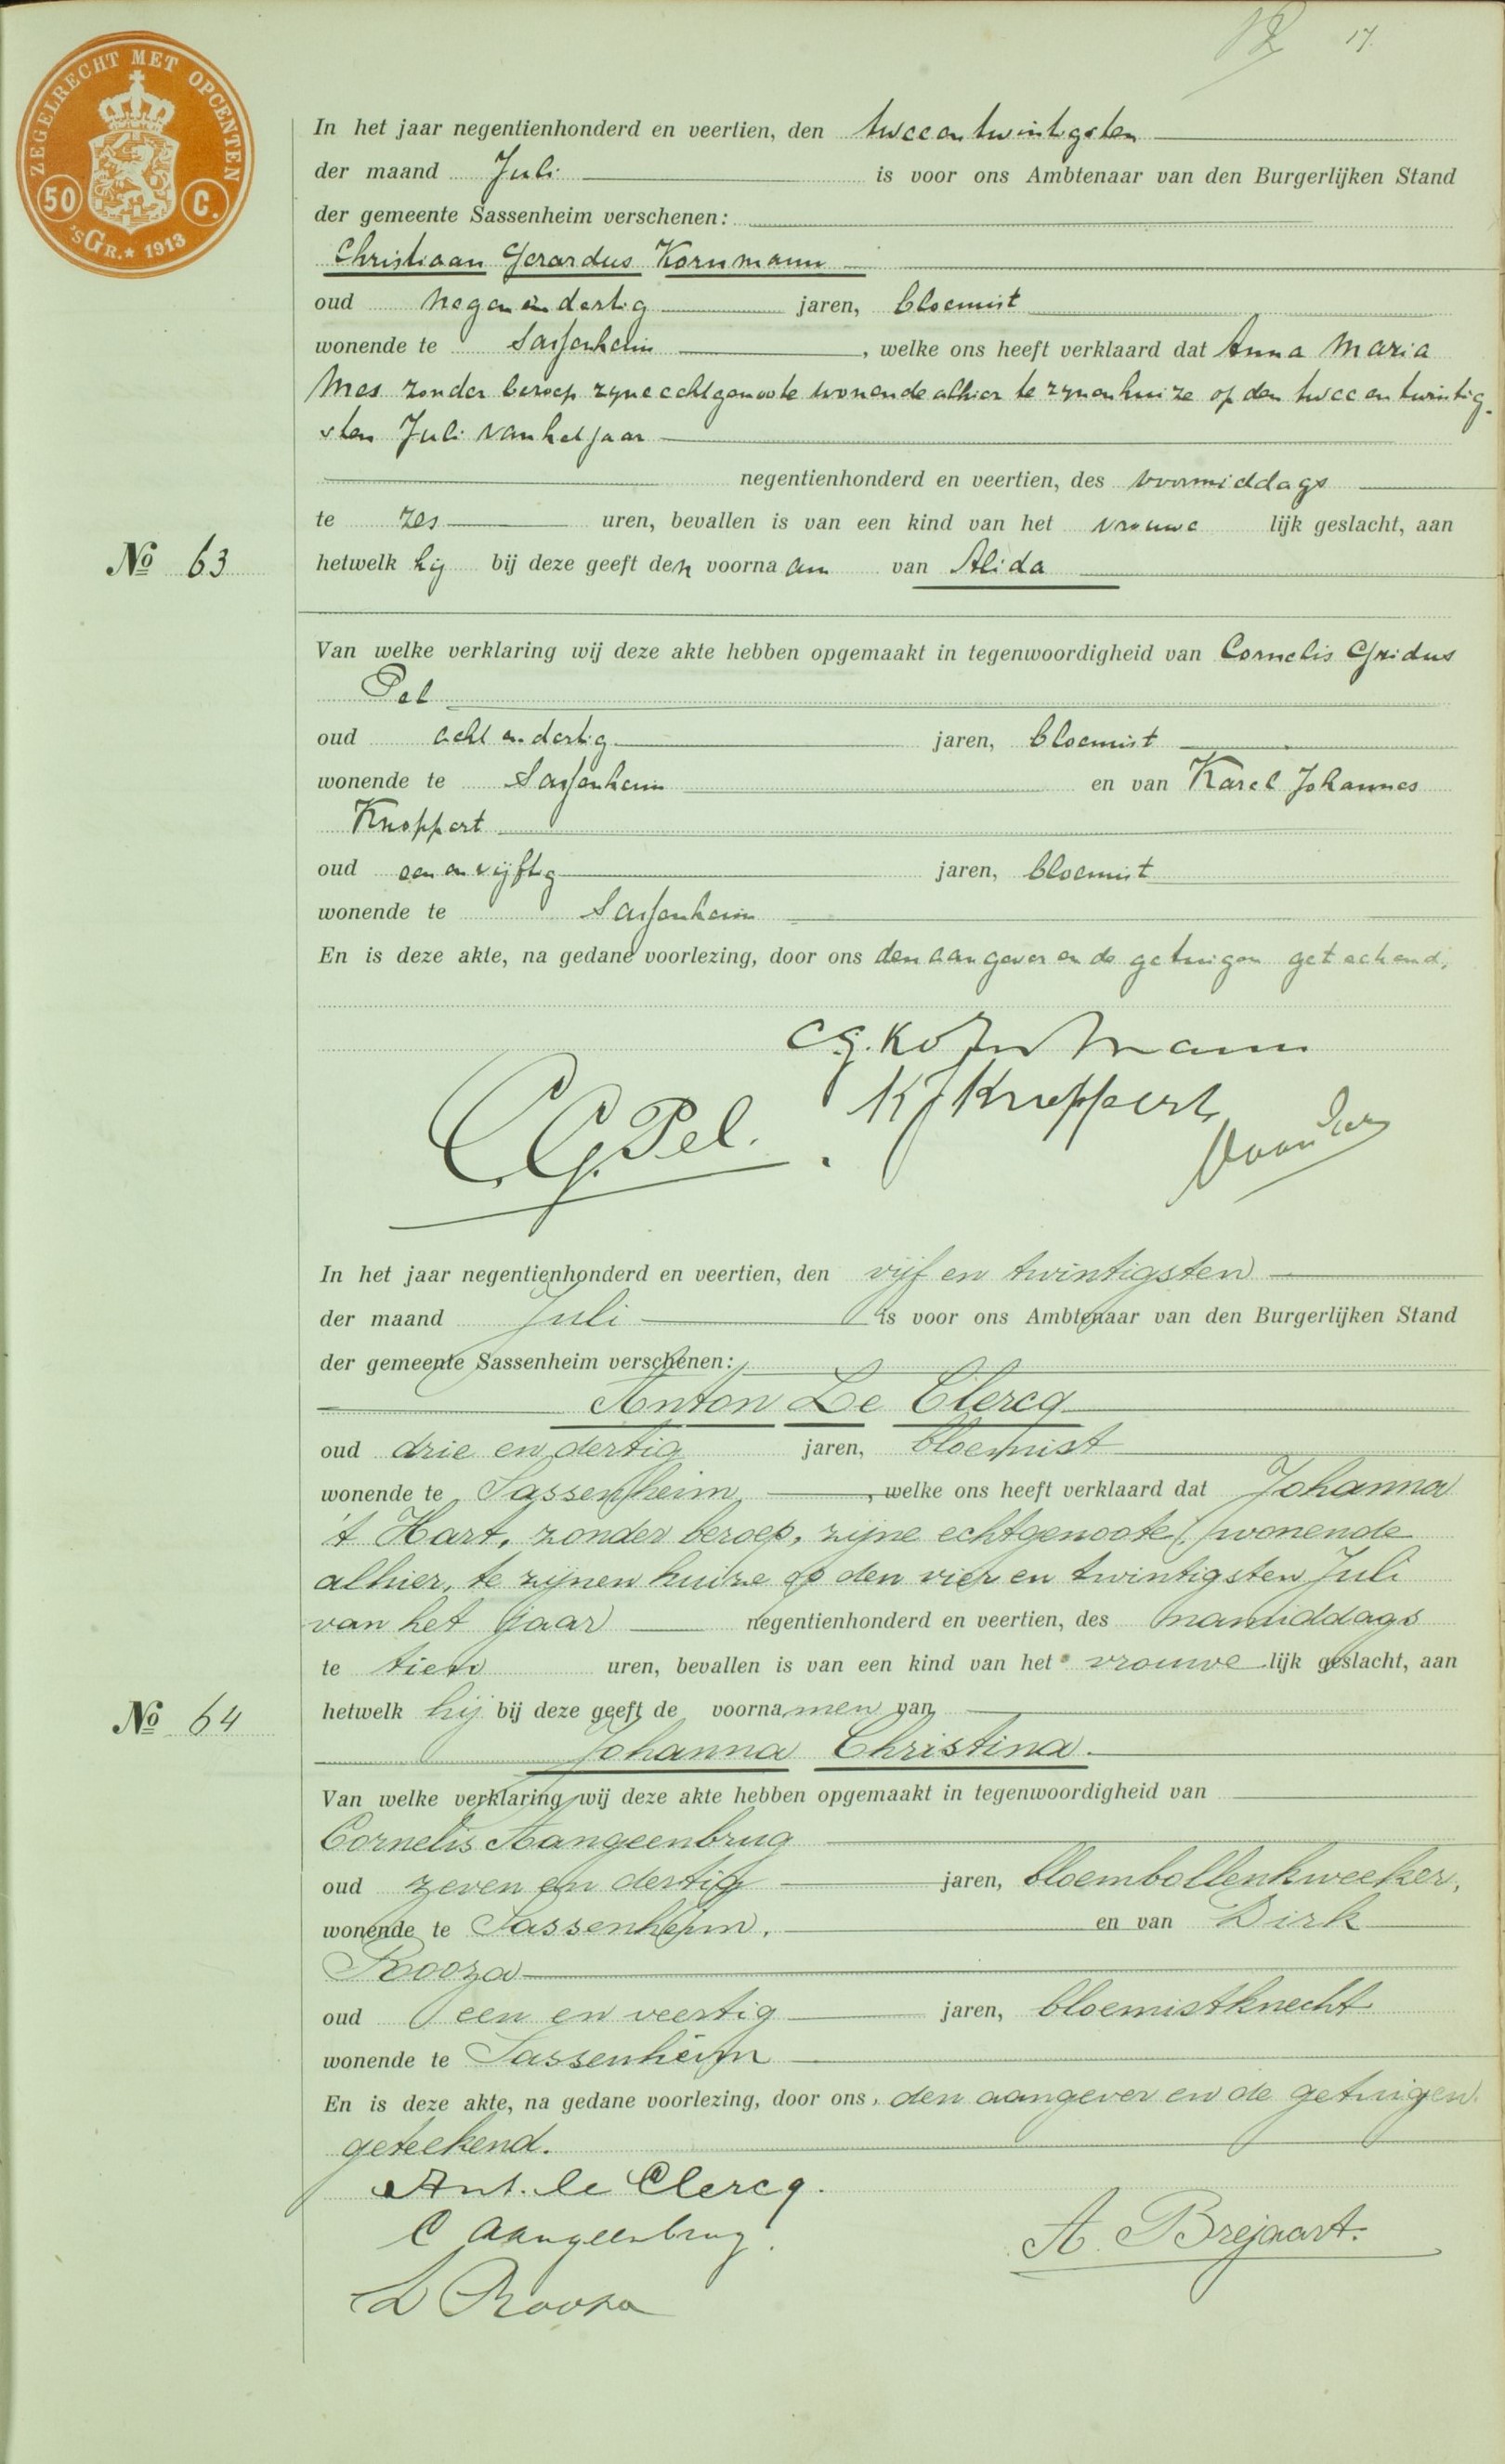 17.
ZEGELRECHT MET OPCENTEN
50 C.
'sGR.★ 1913
In het jaar negentienhonderd en veertien, den tweeentwintigsten
der maand Juli is voor ons Ambtenaar van den Burgerlijken Stand
der gemeente Sassenheim verschenen:
Christiaan Gerardus Kornmann
oud negenendertig jaren, bloemist
wonende te Sassenheim, welke ons heeft verklaard dat Anna Maria
Mes zonder beroep zyne echtgenoote wonende alhier te zynen huize op den tweeentwintig-
sten Juli van het jaar
negentienhonderd en veertien, des voormiddags
te zes uren, bevallen is van een kind van het vrouwelijk geslacht, aan
No 63
hetwelk hij bij deze geeft den voornaam van Alida
Van welke verklaring wij deze akte hebben opgemaakt in tegenwoordigheid van Cornelis Gridus
Pel
oud achtendertig jaren, bloemist
wonende te Sassenheim en van Karel Johannes
Knoppert
oud een en vijftig jaren, bloemist
wonende te Sassenheim
En is deze akte, na gedane voorlezing, door ons den aangever en de getuigen geteekend.
CG. Kornmann
KJ Knoppert
C.G. Pel.
In het jaar negentienhonderd en veertien, den vijf en twintigsten
der maand Juli is voor ons Ambtenaar van den Burgerlijken Stand
der gemeente Sassenheim verschenen:
Anton Le Clercq
oud drie en dertig jaren, bloemist
wonende te Sassenheim, welke ons heeft verklaard dat Johanna
't Hart, zonder beroep, zijne echtgenoote, wonende
alhier, te zijnen huize op den vier en twintigsten Juli
van het jaar negentienhonderd en veertien, des namiddags
te tien uren, bevallen is van een kind van het vrouwelijk geslacht, aan
No 64
hetwelk hij bij deze geeft de voornamen van
Johanna Christina.
Van welke verklaring wij deze akte hebben opgemaakt in tegenwoordigheid van
Cornelis Aangeenbrug
oud zeven en dertig jaren, bloembollenkweeker,
wonende te Sassenheim, en van Dirk
Rooza
oud een en veertig jaren, bloemistknecht
wonende te Sassenheim
En is deze akte, na gedane voorlezing, door ons, den aangever en de getuigen
geteekend.
Ant. le Clercq.
C Aangeenbrug.
A. Brejaart.
D Rooza